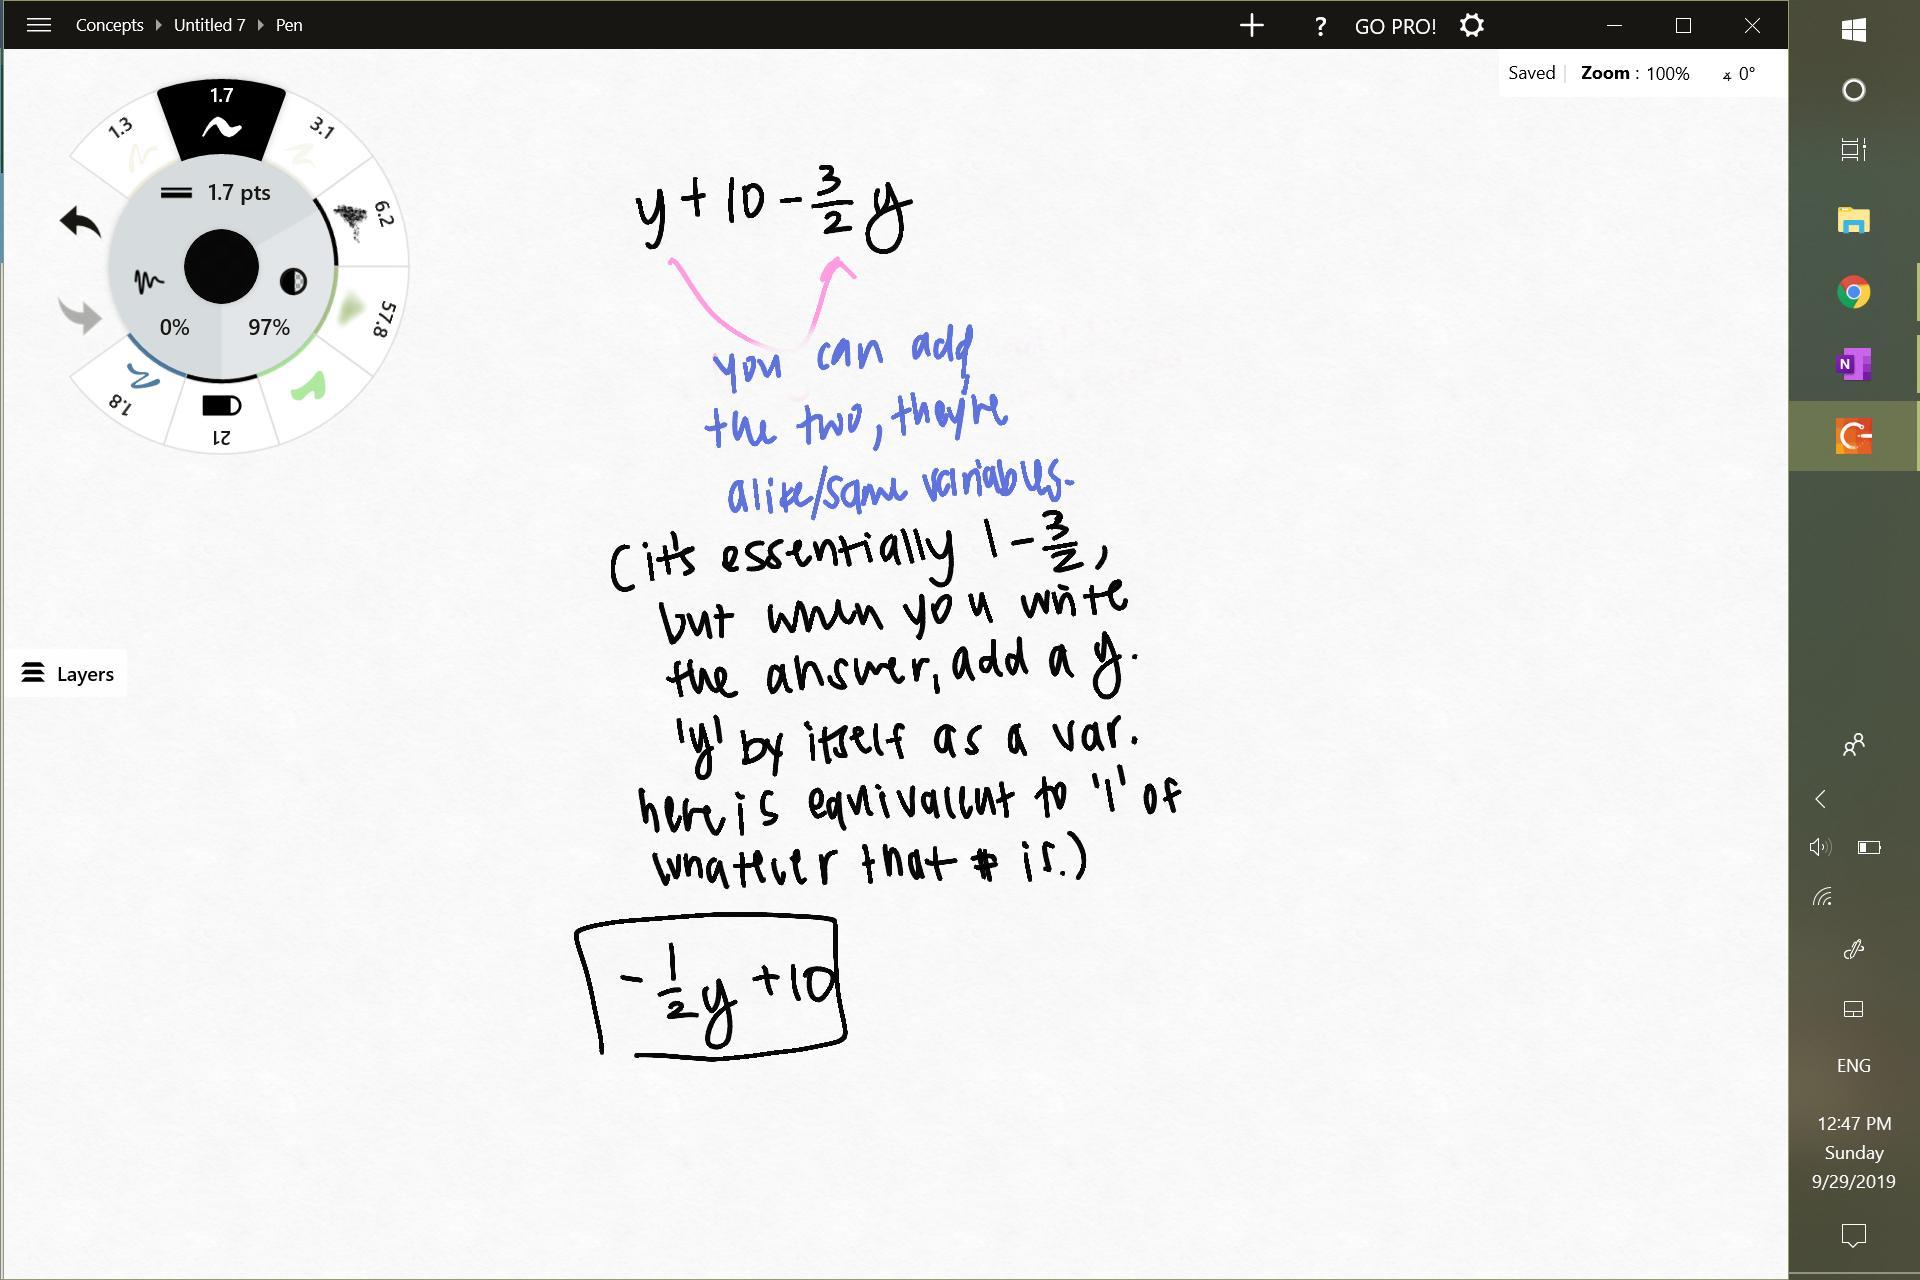 Concepts Untitled 7 Pen
? GO PRO!
Saved Zoom : 100% 0°
1.7
1.3
3.1
1.7 pts
6.2
0% 97%
57.8
1.8
21
Layers
y + 10 - 3/2 y
you can add
the two, they're
alike/same variables.
(it's essentially 1 - 3/2,
but when you write
the answer, add a y.
'y' by itself as a var.
here is equivalent to '1' of
whatever that # is.)
- 1/2 y + 10
N
ENG
12:47 PM
Sunday
9/29/2019